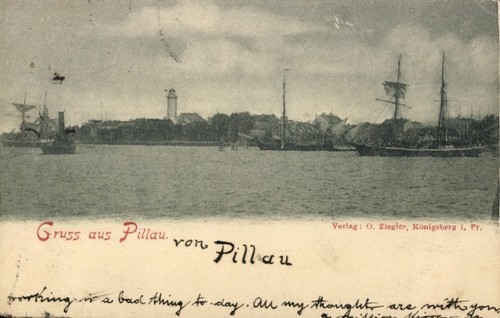 Gruss aus Pillau.
von Pillau
Verlag: O. Ziegler, Königsberg i. Pr.
working is a bad thing to-day. All my thoughts are with you
a million